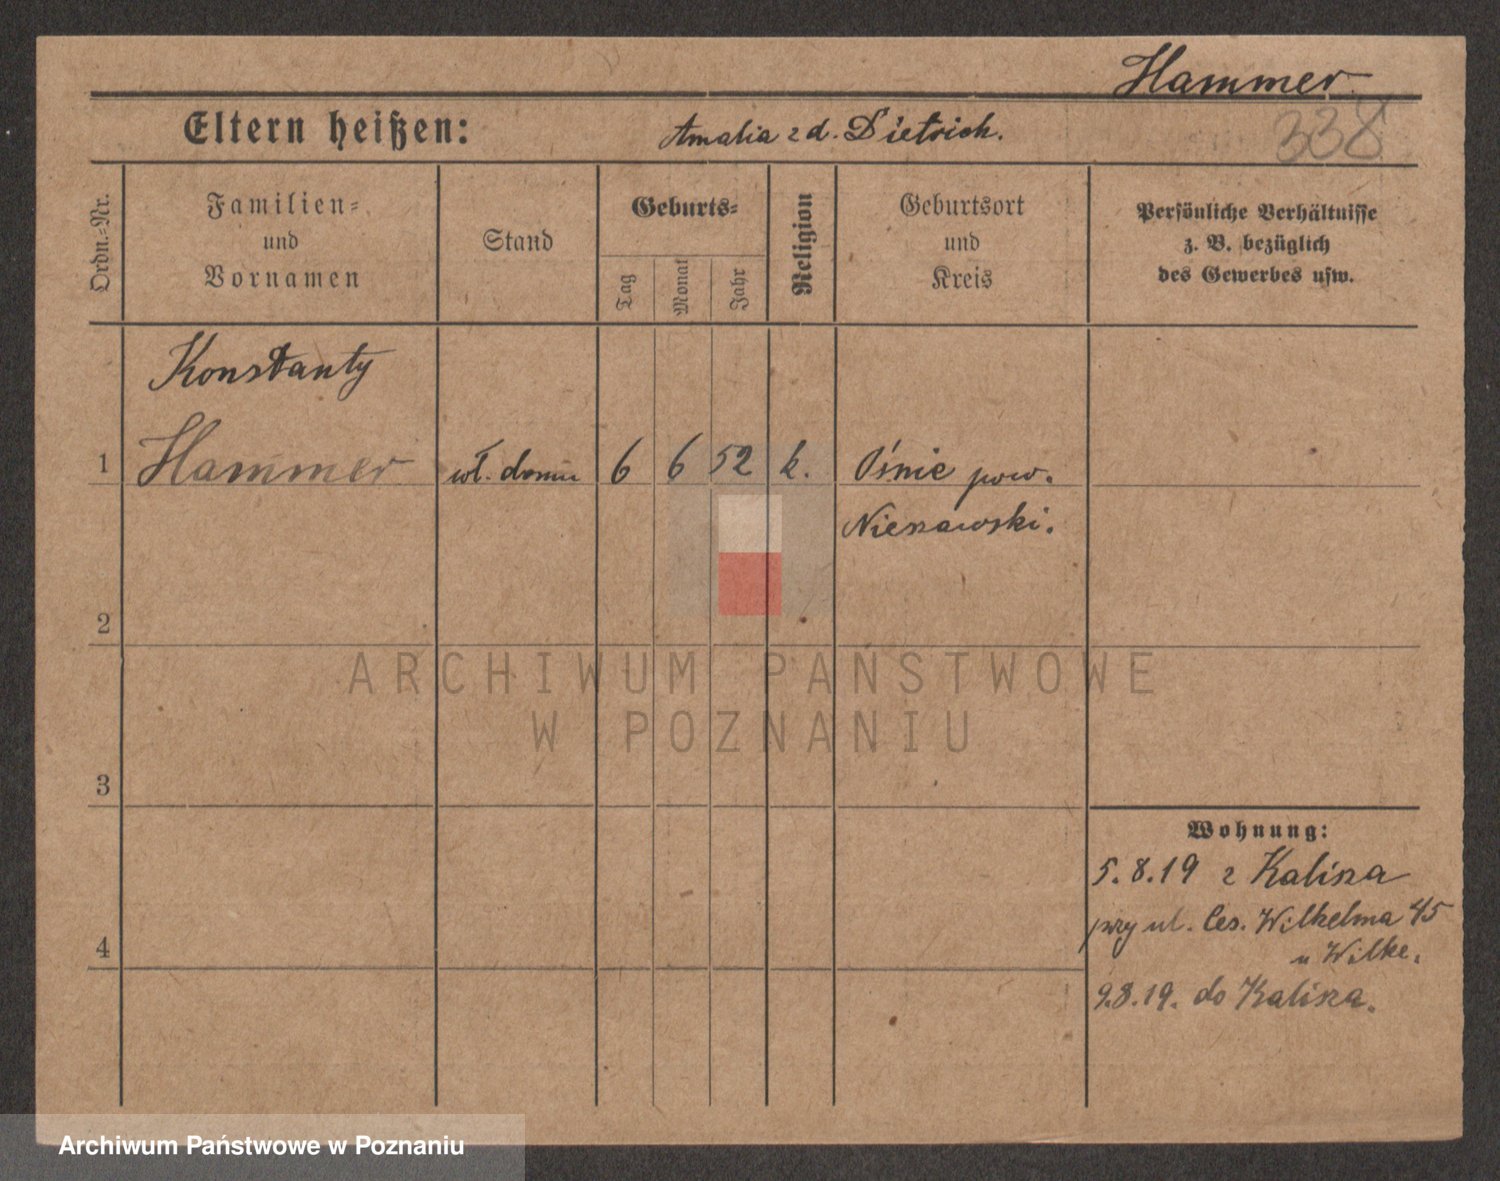 Hammer
Eltern heißen: Amalia z d. Dietrich.
338
Ordn.-Nr.
Familien-
und
Vornamen
Stand
Geburts-
Tag
Monat
Jahr
Religion
Geburtsort
und
Kreis
Persönliche Verhältnisse
z. B. bezüglich
des Gewerbes usw.
Konstanty
1 Hammer wł. domu 6 6 52 k. Ośnie pow.
Nieszawski.
2
ARCHIWUM PAŃSTWOWE
W POZNANIU
3
Wohnung:
5.8.19 z Kalisza
przy ul. Ces. Wilhelma 45
u Wilke.
4
9.8.19. do Kalisza.
Archiwum Państwowe w Poznaniu